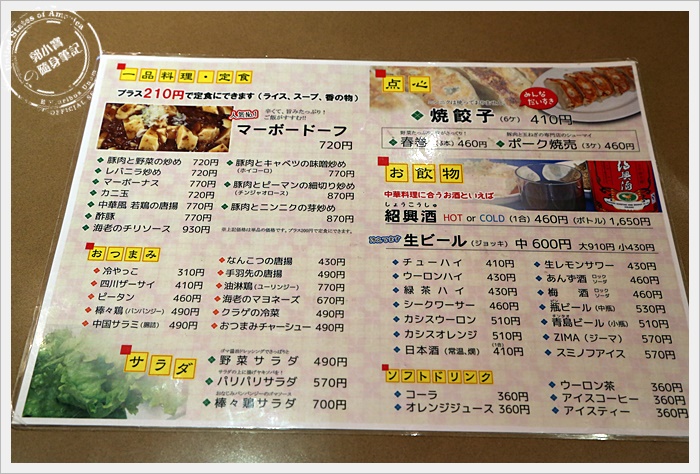 郭小寶
の隨身筆記
一品料理・定食
プラス210円で定食にできます（ライス、スープ、香の物）
人気No.1
辛くて、旨みたっぷり！
ご飯がすすむ!!
マーボードーフ
720円
豚肉と野菜の炒め 720円
レバニラ炒め 720円
マーボーナス 770円
カニ玉 720円
中華風 若鶏の唐揚 770円
酢豚 770円
海老のチリソース 930円
豚肉とキャベツの味噌炒め
(ホイコーロ) 770円
豚肉とピーマンの細切り炒め
(チンジャオロース) 870円
豚肉とニンニクの芽炒め
870円
おつまみ
冷やっこ 310円
四川ザーサイ 410円
ピータン 460円
棒々鶏(バンバンジー) 490円
中国サラミ(腸詰) 490円
なんこつの唐揚 430円
手羽先の唐揚 490円
油淋鶏(ユーリンジー) 770円
海老のマヨネーズ 670円
クラゲの冷菜 490円
おつまみチャーシュー 490円
サラダ
野菜サラダ 490円
パリパリサラダ 570円
棒々鶏サラダ 700円
点心
みんな
だいすき
焼餃子 (6ケ) 410円
春巻 (3本) 460円
豚肉と玉ねぎの専門店のシューマイ
ポーク焼売 (3ケ) 460円
お飲物
中華料理に合うお酒といえば
しょうこうしゅ
紹興酒 HOT or COLD (1合) 460円 (ボトル) 1,650円
生ビール (ジョッキ) 中 600円 大910円 小430円
チューハイ 410円
ウーロンハイ 430円
緑茶ハイ 410円
シークワーサー 460円
カシスウーロン 510円
カシスオレンジ 510円
日本酒 (常温、燗) (1合) 410円
生レモンサワー 430円
あんず酒 ロック ソーダ 460円
梅酒 ロック ソーダ 460円
瓶ビール(中瓶) 530円
青島ビール(小瓶) 510円
ZIMA (ジーマ) 570円
スミノフアイス 570円
ソフトドリンク
コーラ 360円
オレンジジュース 360円
ウーロン茶 360円
アイスコーヒー 360円
アイスティー 360円